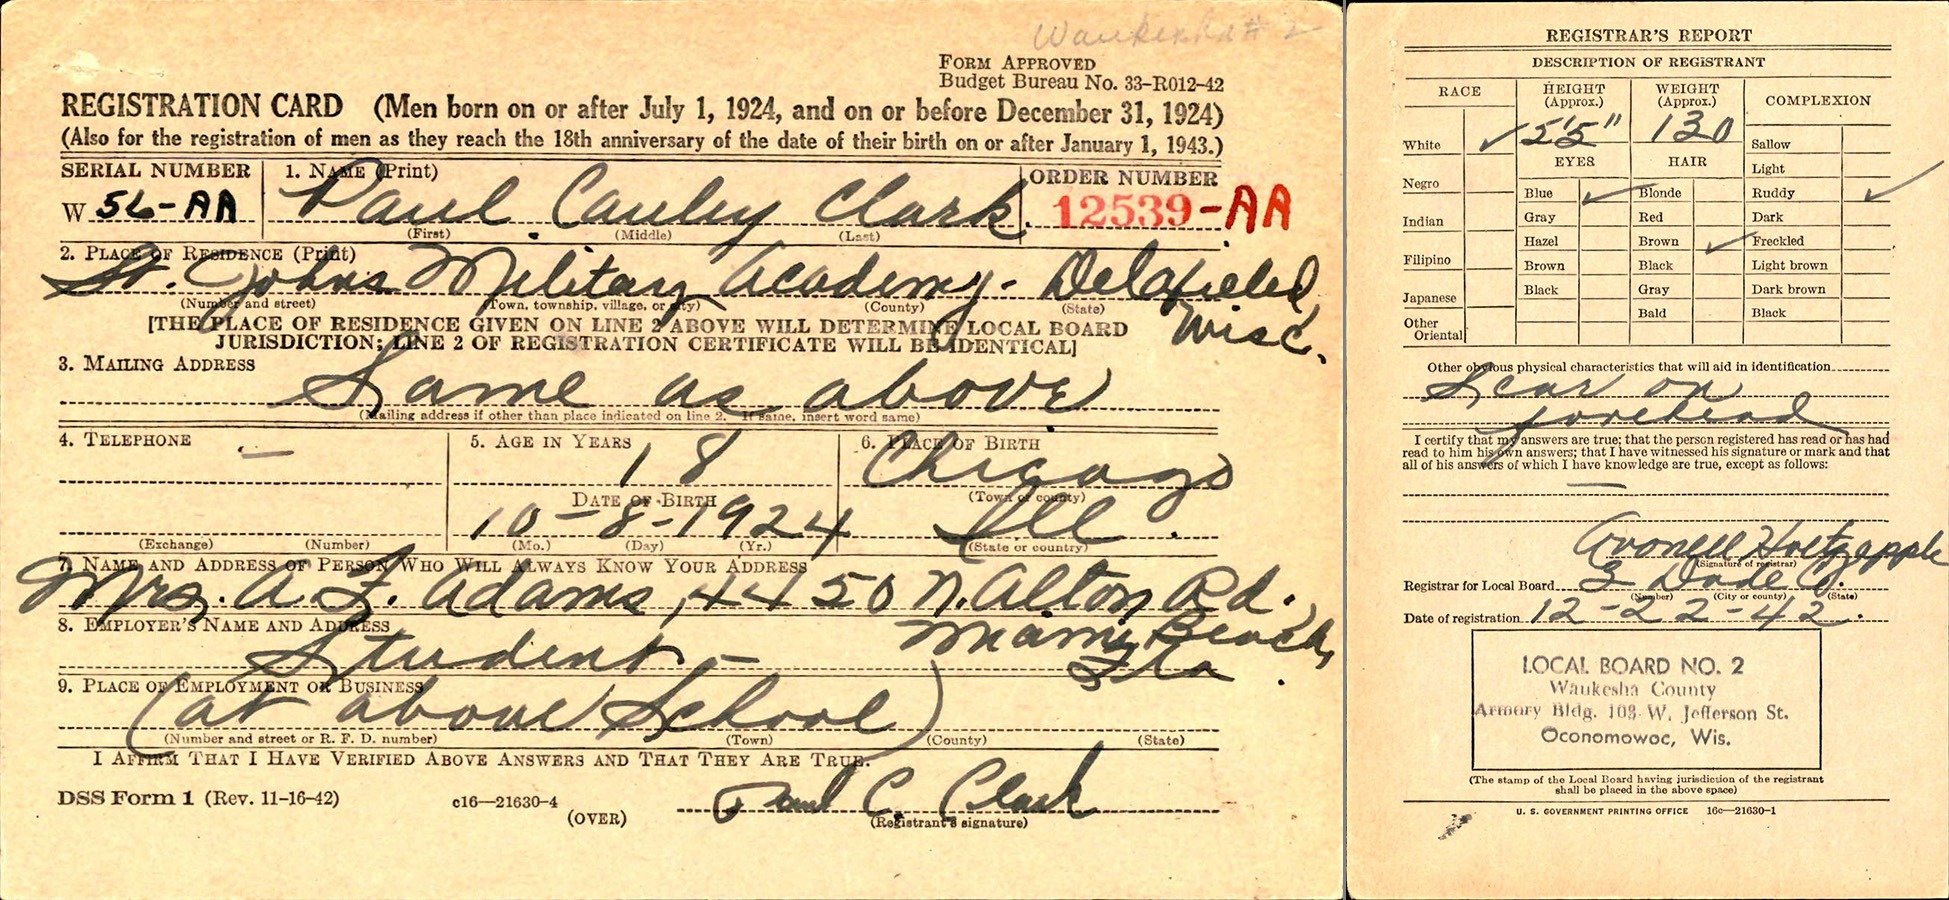 Waukesha # 2
FORM APPROVED
Budget Bureau No. 33-R012-42
REGISTRATION CARD (Men born on or after July 1, 1924, and on or before December 31, 1924)
(Also for the registration of men as they reach the 18th anniversary of the date of their birth on or after January 1, 1943.)
SERIAL NUMBER 1. NAME (Print) ORDER NUMBER
W 56-AA Paul Cauley Clark. 12539-AA
(First) (Middle) (Last)
2. PLACE OF RESIDENCE (Print)
St. Johns Military Academy - Delafield,
Wisc.
(Number and street) (Town, township, village, or city) (County) (State)
[THE PLACE OF RESIDENCE GIVEN ON LINE 2 ABOVE WILL DETERMINE LOCAL BOARD
JURISDICTION; LINE 2 OF REGISTRATION CERTIFICATE WILL BE IDENTICAL]
3. MAILING ADDRESS
Same as above
(Mailing address if other than place indicated on line 2. If same, insert word same)
4. TELEPHONE 5. AGE IN YEARS 6. PLACE OF BIRTH
— 18 Chicago
DATE OF BIRTH (Town or county)
10-8-1924 Ill.
(Exchange) (Number) (Mo.) (Day) (Yr.) (State or country)
7. NAME AND ADDRESS OF PERSON WHO WILL ALWAYS KNOW YOUR ADDRESS
Mrs. A. F. Adams, 4450 N. Alton Rd.,
8. EMPLOYER'S NAME AND ADDRESS Miami Beach,
Student - Fla.
9. PLACE OF EMPLOYMENT OR BUSINESS
(at above School)
(Number and street or R. F. D. number) (Town) (County) (State)
I AFFIRM THAT I HAVE VERIFIED ABOVE ANSWERS AND THAT THEY ARE TRUE.
DSS Form 1 (Rev. 11-16-42) c16—21630-4 (OVER) Paul C Clark
(Registrant's signature)
REGISTRAR'S REPORT
DESCRIPTION OF REGISTRANT
RACE HEIGHT (Approx.) WEIGHT (Approx.) COMPLEXION
White ✓ 5'5" 130 Sallow
EYES HAIR Light
Negro Blue ✓ Blonde Ruddy ✓
Indian Gray Red Dark
Hazel Brown ✓ Freckled
Filipino Brown Black Light brown
Japanese Black Gray Dark brown
Other Oriental Bald Black
Other obvious physical characteristics that will aid in identification
Scar on
forehead
I certify that my answers are true; that the person registered has read or has had
read to him his own answers; that I have witnessed his signature or mark and that
all of his answers of which I have knowledge are true, except as follows:
—
(Signature of registrar)
Registrar for Local Board 3 Dade Co.
(Number) (City or county) (State)
Date of registration 12-22-42.
LOCAL BOARD NO. 2
Waukesha County
Armory Bldg. 103 W. Jefferson St.
Oconomowoc, Wis.
(The stamp of the Local Board having jurisdiction of the registrant
shall be placed in the above space)
U. S. GOVERNMENT PRINTING OFFICE 16c—21630-1